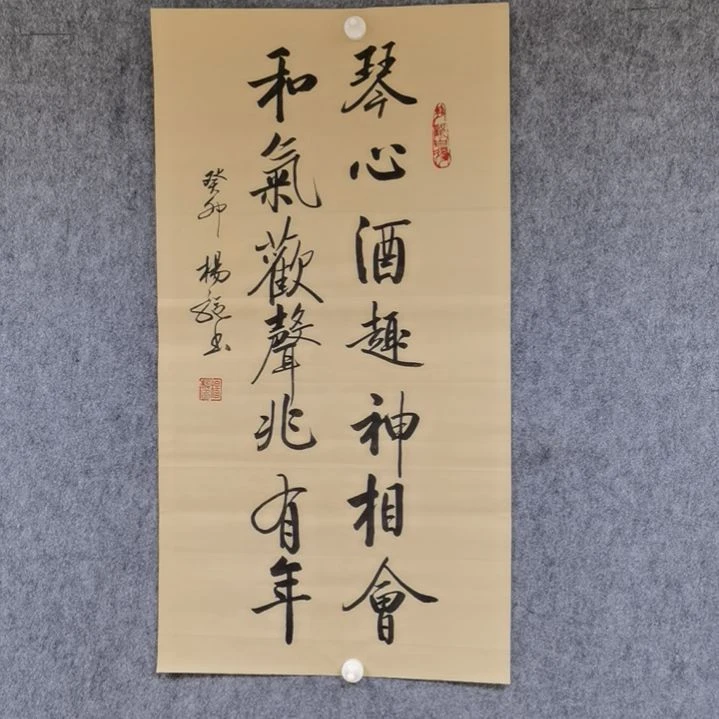 琴心酒趣神相會
和氣歡聲兆有年
癸卯 楊 書